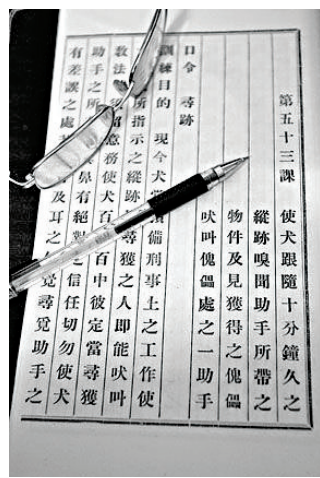 第五十三課 使犬跟隨十分鐘久之
縱跡嗅聞助手所帶之
物件及見獲得之傀儡
吠叫傀儡處之一助手
口令 尋跡
訓練目的 現今犬當預備刑事上之工作使
所指示之縱跡尋獲之人即能吠叫
教法 留意務使犬百百中彼定當尋獲
助手之所鼻有絕對之信任切勿使犬
有差誤之處及耳之覓尋覓助手之